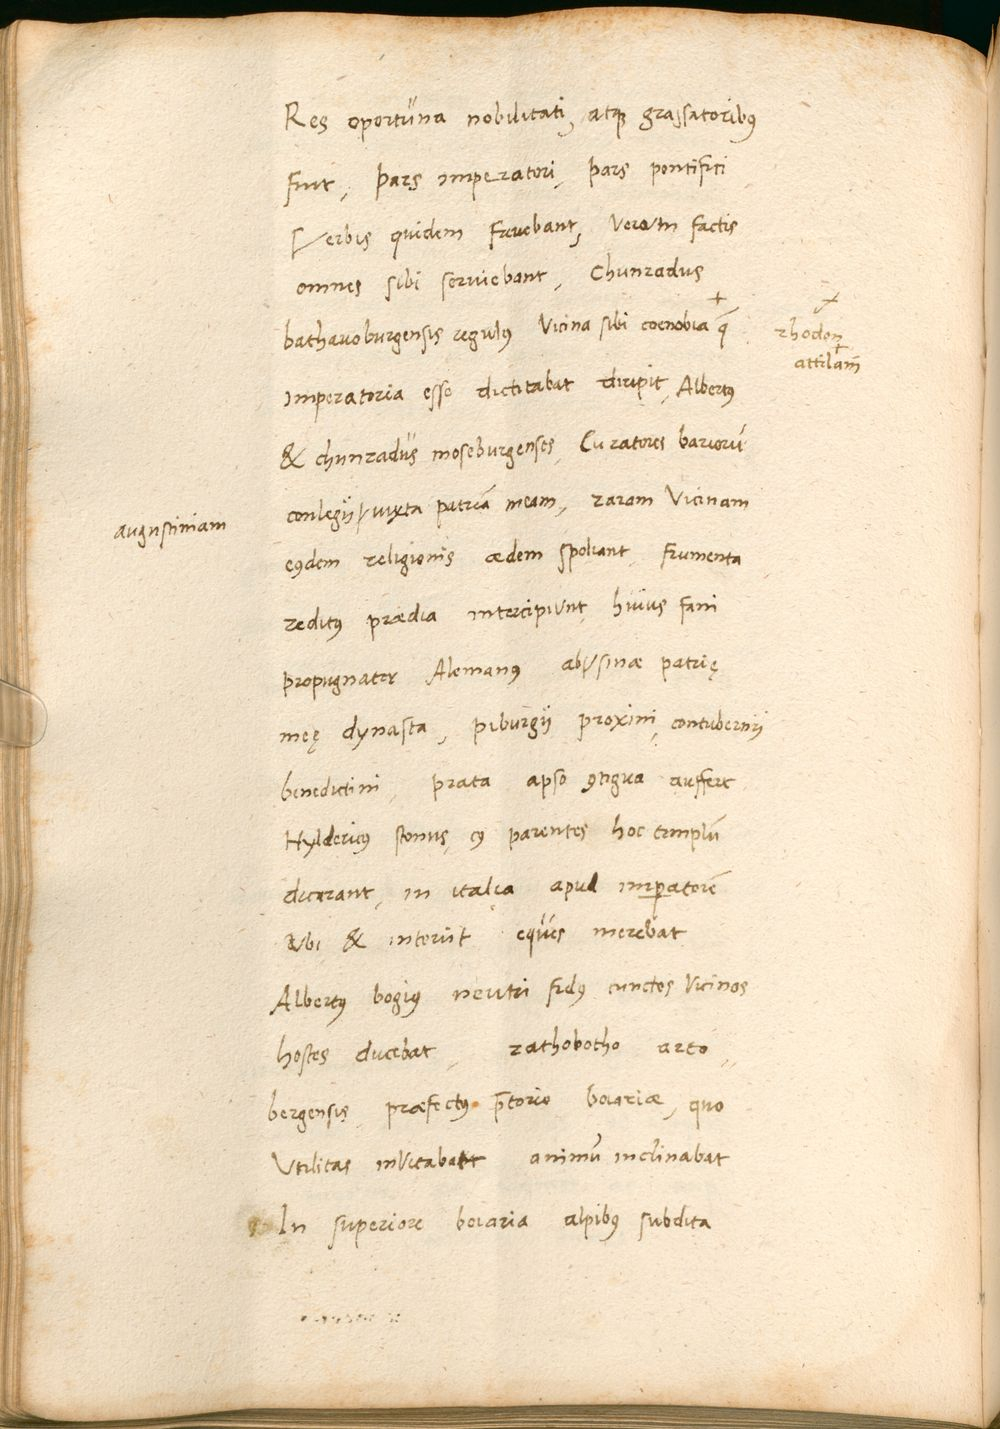 Res oportuna nobilitati, atqꝫ grassatoribꝰ
fuit, pars imperatori, pars pontifici
Verbis quidem fauebant, verum factis
omnes sibi seruiebant, Chunradus
bathauoburgensis regulꝰ Vicina sibi coenobia + q̄
+ rhodon̄
attilam̄
imperatoria esse dictitabat diripit, Albertꝰ
& chunradus moseburgenses, Curatores bariorū
conlegij iuxta patriā meam, raram Vicinam
augustiniam
eꝰdem religionis ædem spoliant, frumenta
reditꝰ prædia intercipiunt, huius fani
propugnator Alemanꝰ abusinæ patrię
meę dynasta, piburgij proximi, contubernij
benedictini, prata apso ꝯtigua auffert
Hyldericꝰ stonus, cꝰ parentes hoc templū
dicarant, in italia apud imꝑatorē
Vbi & interiit eques merebat
Albertꝰ bogiꝰ neutri fidꝰ cunctos Vicinos
hostes ducebat, rathobotho arto,,
bergensis, præfectꝰ p̄torio boiariæ, quo
Vtilitas inuitabat animū inclinabat
In superiore boiaria alpibꝰ subdita